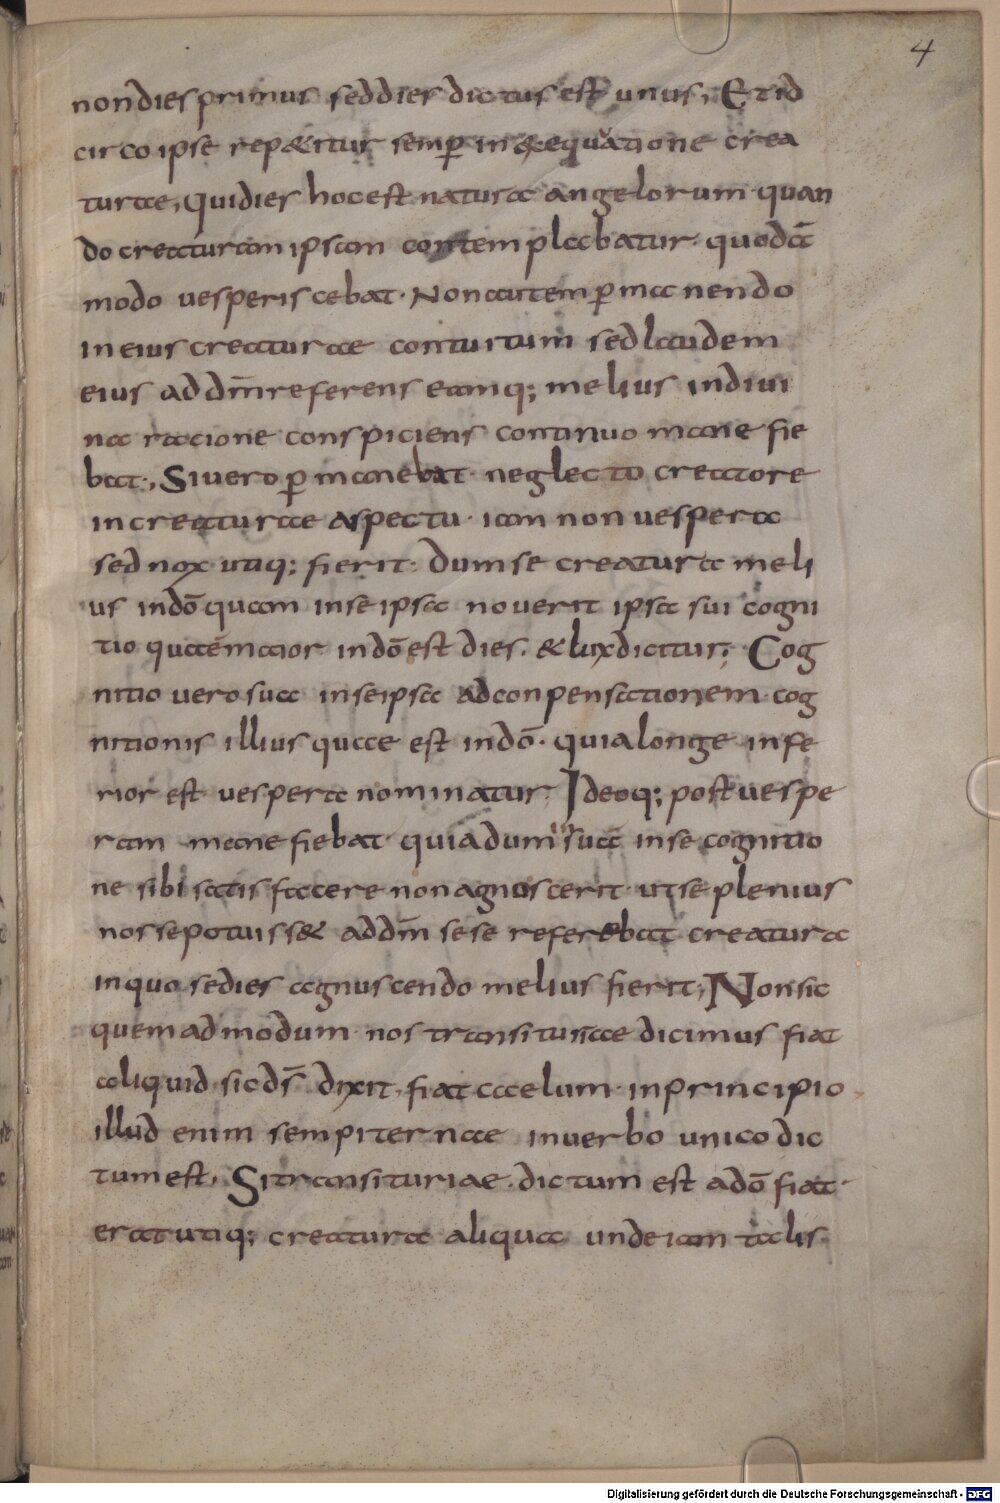 4
non dies primus sed dies dictus est unus; Et id
circo ipse repetitur semper in &equatione crea
turae, qui dies hoc est natura angelorum quan
do creaturam ipsam contemplabatur quodā
modo vesperiscebat· Non autem p̄manendo
in eius creaturae contuitum sed laudem
eius ad dm̄ referens eamq; melius in divi
na racione conspiciens continuo mane fie
bat·, Si vero p̄manebat· neglecto creatore
in creaturae aspectu· iam non vespera
sed nox utiq; fierit· Dum se creatura meli
us in dō quam in se ipsa noverit ipsa sui cogni
tio quae maior in dō est dies. & lux dicitur; Cog
nitio vero sua in se ipsa ad conpensationem cog
nitionis illius quae est in dō· quia longe infe
rior est vespera nominatur· Ideoq; post vespe
ram mane fiebat· quia dum sua in se cognitio
ne sibi satis facere non agnoscerit· ut se plenius
nosse potuiss& ad dm̄ sese referebat creatura
in quo se dies agnuscendo melius fierit; Non sic
quemadmodum nos transituriae dicimus fiat
aliquid sic dš dixit fiat caelum· in principio
illud enim sempiternae in verbo unico dic
tum est, Si transituriae dictum est a dō fiat·
erat utiq; creatura aliqua unde iam talis·
Digitalisierung gefördert durch die Deutsche Forschungsgemeinschaft - DFG